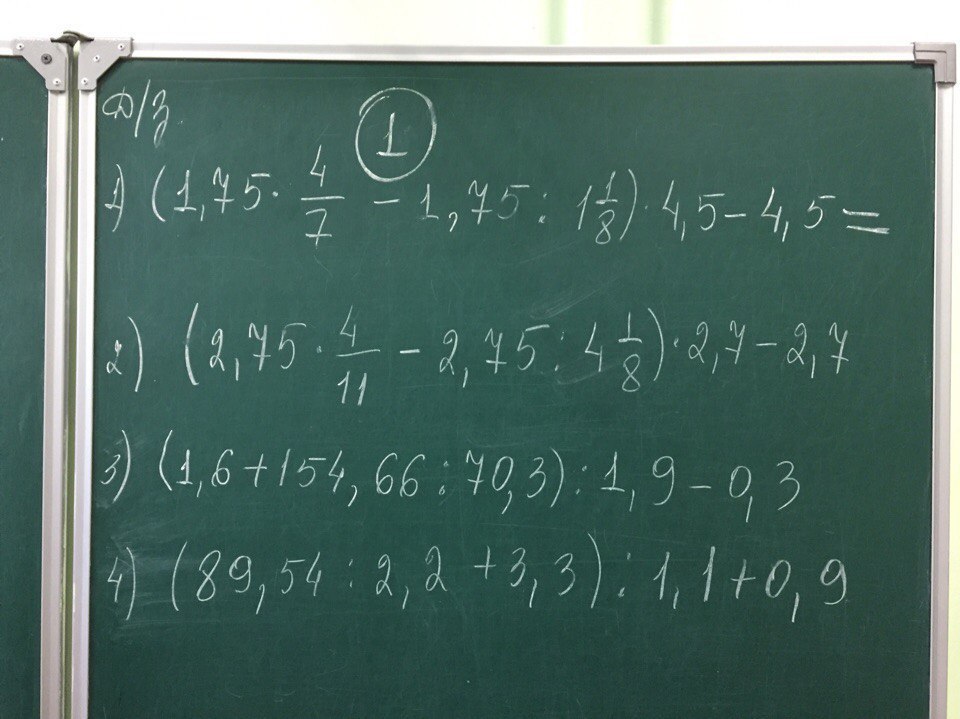 Д/з.
①
1) (1,75 · 4/7 − 1,75 : 1 1/8) · 4,5 − 4,5 =
2) (2,75 · 4/11 − 2,75 : 4 1/8) · 2,7 − 2,7
3) (1,6 + 154,66 : 70,3) : 1,9 − 0,3
4) (89,54 : 2,2 + 3,3) : 1,1 + 0,9